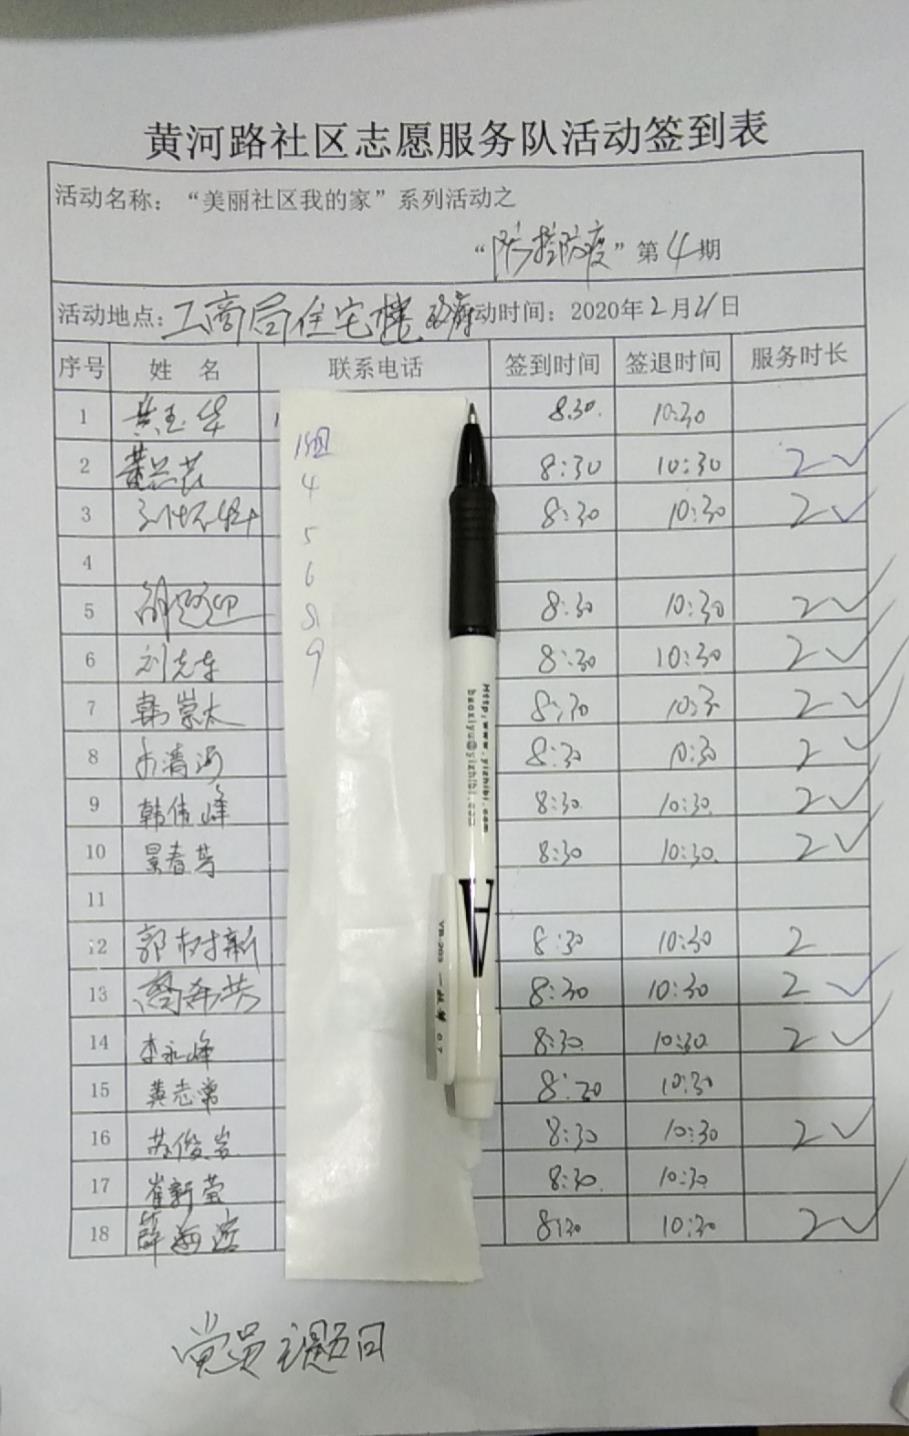 黄河路社区志愿服务队活动签到表
活动名称：“美丽社区我的家”系列活动之
“防控防疫”第4期
活动地点：工商局住宅楼 动时间：2020年2月21日
序号 姓 名 联系电话 签到时间 签退时间 服务时长
1 黄玉华 8:30. 10:30
2 黄兰芸 8:30 10:30 2✓
3 8:30 10:30 2✓
4
5 8:30 10:30 2✓
6 刘克车 8:30 10:30 2✓
7 韩崇太 8:30 10:3 2✓
8 清河 8:30 10:30 2✓
9 韩伟峰 8:30 10:30 2✓
10 景春芳 8:30 10:30 2✓
11
12 郭树新 8:30 10:30 2
13 8:30 10:30 2✓
14 李永峰 8:30 10:30 2✓
15 黄志常 8:20 10:30
16 苏俊岩 8:30 10:30 2✓
17 崔新莹 8:30 10:30
18 薛海 8:30 10:30 2✓
1组
4
5
6
8
9
Http,www.yizhibi.com
baoxiyu@yizhibi.com
A
0.7
党员主题日